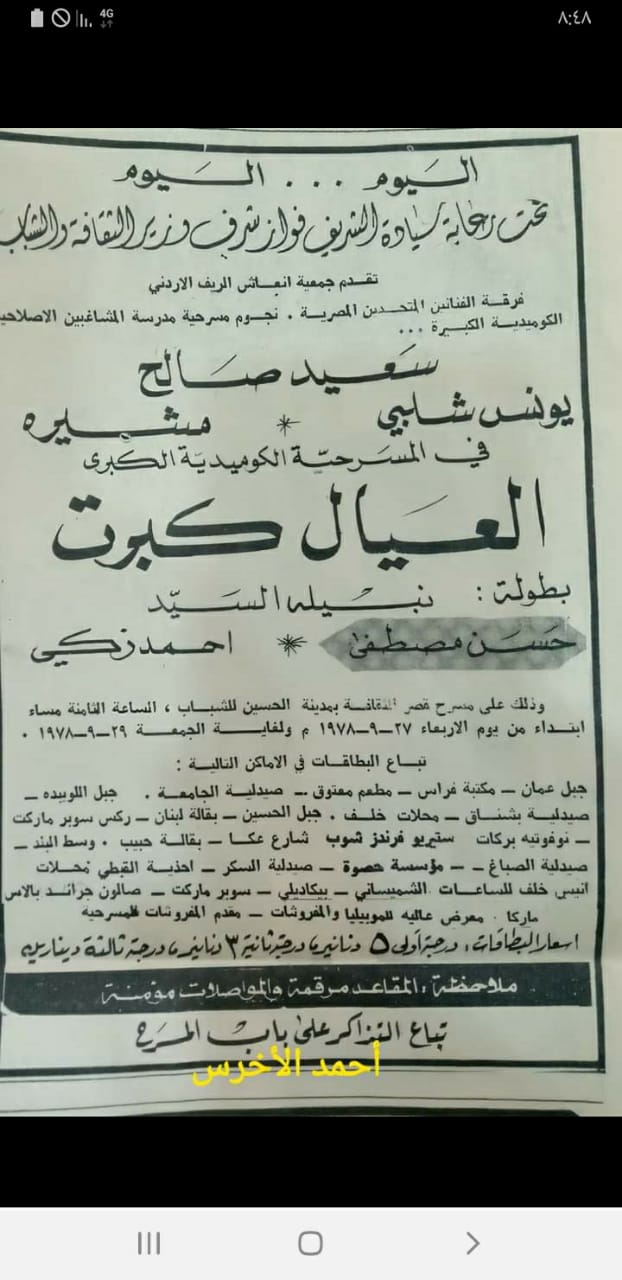 4G
٨:٤٨
اليوم ... اليوم
تحت رعاية سيادة الشريف فواز شرف وزير الثقافة والشباب
تقدم جمعية انعاش الريف الاردني
فرقة الفنانين المتحدين المصرية . نجوم مسرحية مدرسة المشاغبين الاصلاحية
الكوميدية الكبيرة ...
سعيد صالح
يونس شلبي * مشيره
في المسرحية الكوميدية الكبرى
العيال كبرت
بطولة : نبيله السيد
حسن مصطفى * احمد زكي
وذلك على مسرح قصر الثقافة بمدينة الحسين للشباب ، الساعة الثامنة مساء
ابتداء من يوم الاربعاء ٢٧-٩-١٩٧٨ م ولغاية الجمعة ٢٩-٩-١٩٧٨ .
تباع البطاقات في الاماكن التالية :
جبل عمان – مكتبة فراس – مطعم معتوق – صيدلية الجامعة . جبل اللويبده –
صيدلية بشناق – محلات خلف . جبل الحسين – بقالة لبنان – ركس سوبر ماركت
– نوفوتيه بركات ستيريو فرندز شوب شارع عكا – بقالة حبيب . وسط البلد –
صيدلية الصباغ – – مؤسسة حصوة – صيدلية السكر – احذية القبطي محلات
انيس خلف للساعات الشميساني – بيكاديلي – سوبر ماركت – صالون جرائد بالاس
ماركا . معرض عاليه للموبيليا والمفروشات – مقدم المفروشات للمسرحية
اسعار البطاقات ، درجة أولى ٥ دنانير ، درجة ثانية ٣ دنانير ، درجة ثالثة ديناريه
ملاحظة : المقاعد مرقمة والمواصلات مؤمنة
تباع التذاكر على باب المسرح
أحمد الأخرس